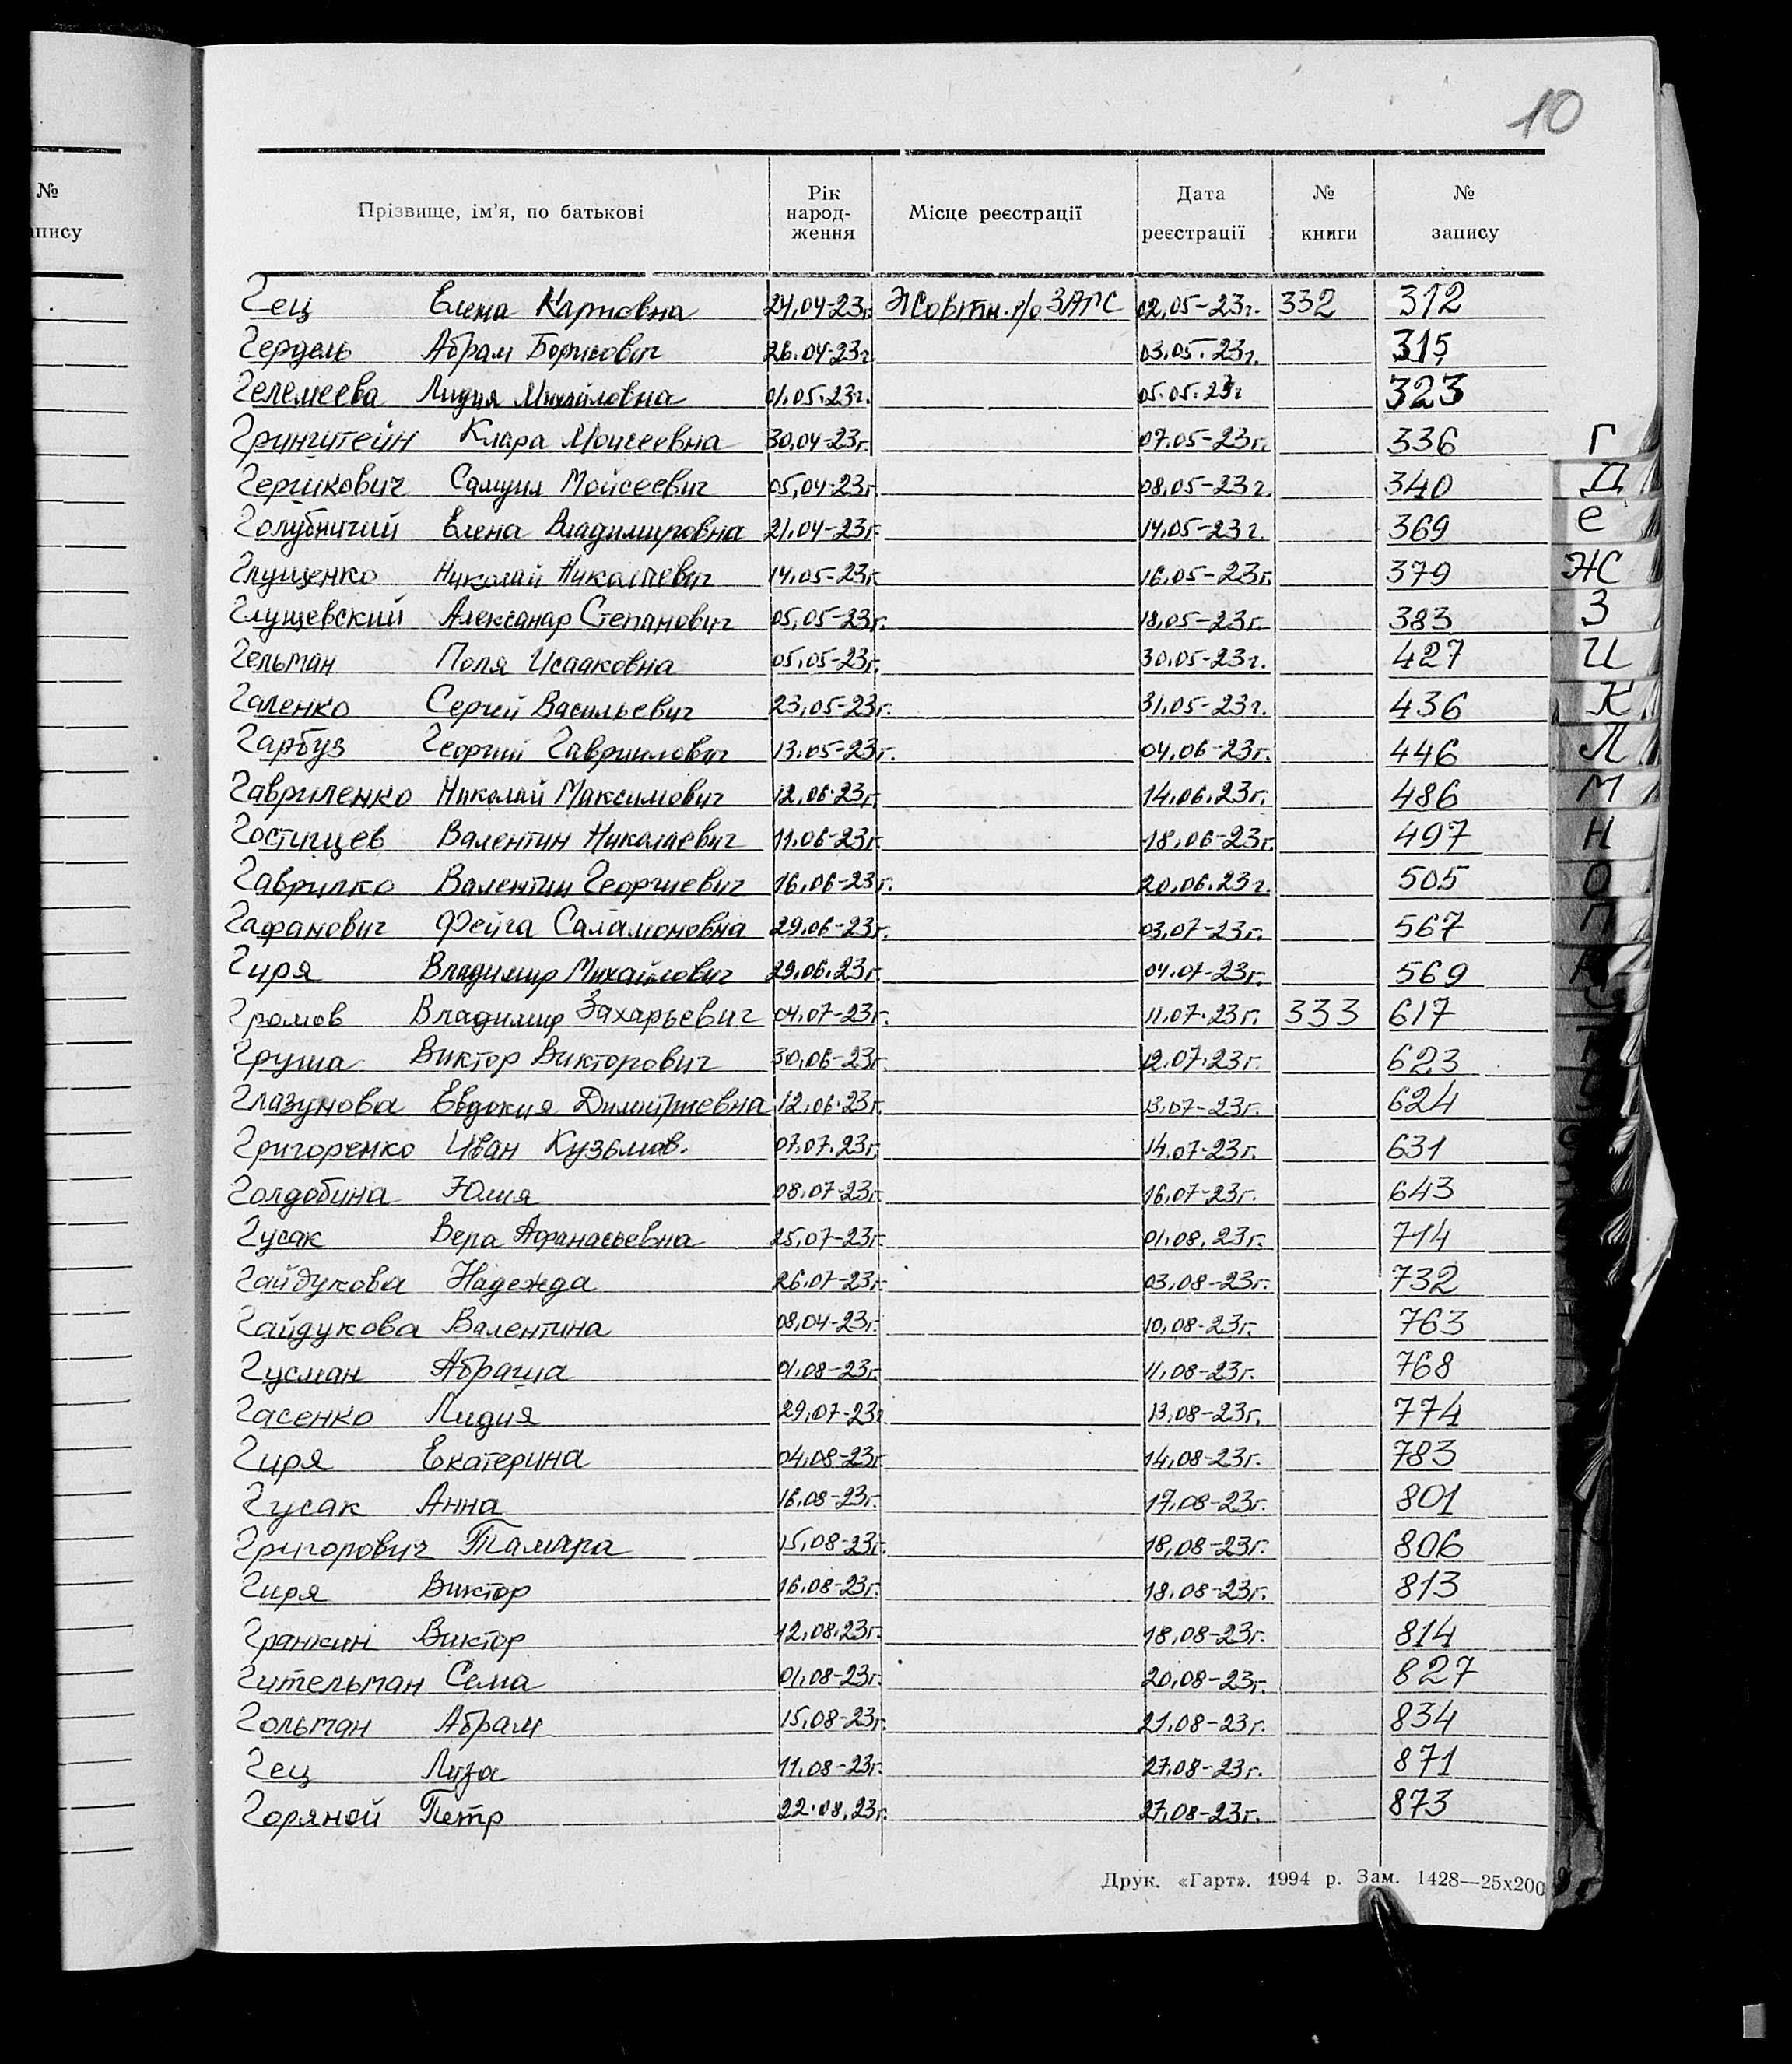 10
№
запису
Прізвище, ім'я, по батькові Рік народження Місце реєстрації Дата реєстрації № книги № запису
Гец Елена Карповна 24.04-23г. Жовтн. р/о ЗАГС 02.05-23г. 332 312
Гердель Абрам Борисович 26.04-23г. 03.05.23г. 315
Гелемеева Лидия Михайловна 01.05.23г. 05.05.23г 323
Гринштейн Клара Моисеевна 30.04-23г. 07.05-23г. 336
Гершкович Самуил Мойсеевич 05.04-23г. 08.05-23г. 340
Голубничий Елена Владимировна 21.04-23г. 14.05-23г. 369
Глущенко Николай Николаевич 14.05-23г. 16.05-23г. 379
Глущевский Александр Степанович 05.05-23г. 18.05-23г. 383
Гельман Поля Исааковна 05.05-23г. 30.05-23г. 427
Галенко Сергей Васильевич 23.05-23г. 31.05-23г. 436
Гарбуз Георгий Гавриилович 13.05-23г. 04.06-23г. 446
Гавриленко Николай Максимович 12.06.23г. 14.06.23г. 486
Гостищев Валентин Николаевич 11.06-23г. 18.06-23г. 497
Гаврилко Валентин Георгиевич 16.06-23г. 20.06.23г. 505
Гафанович Фейга Саламоновна 29.06-23г. 03.07-23г. 567
Гиря Владимир Михайлович 29.06.23г. 04.07-23г. 569
Громов Владимир Захарьевич 04.07-23г. 11.07.23г. 333 617
Груша Виктор Викторович 30.06-23г. 12.07.23г. 623
Глазунова Евдокия Димитриевна 12.06.23г. 13.07-23г. 624
Григоренко Иван Кузьмов. 07.07.23г. 14.07-23г. 631
Голдобина Юлия 08.07-23г. 16.07-23г. 643
Гусак Вера Афанасьевна 25.07-23г. 01.08.23г. 714
Гайдукова Надежда 26.07-23г. 03.08-23г. 732
Гайдукова Валентина 08.04-23г. 10.08-23г. 763
Гусман Абраша 01.08-23г. 11.08-23г. 768
Гасенко Лидия 29.07-23г 13.08-23г. 774
Гиря Екатерина 04.08-23г. 14.08-23г. 783
Гусак Анна 16.08-23г. 17.08-23г. 801
Григорович Тамара 15.08-23г. 18.08-23г. 806
Гиря Виктор 16.08-23г. 18.08-23г. 813
Гранкин Виктор 12.08.23г. 18.08-23г. 814
Гительман Сема 01.08-23г. 20.08-23г. 827
Гольман Абрам 15.08-23г. 21.08-23г. 834
Гец Лиза 11.08-23г. 27.08-23г. 871
Горяной Петр 22.08.23г. 27.08-23г. 873
Г
Д
е
Ж
З
И
К
Л
М
Н
О
П
Друк. «Гарт». 1994 р. Зам. 1428—25х200